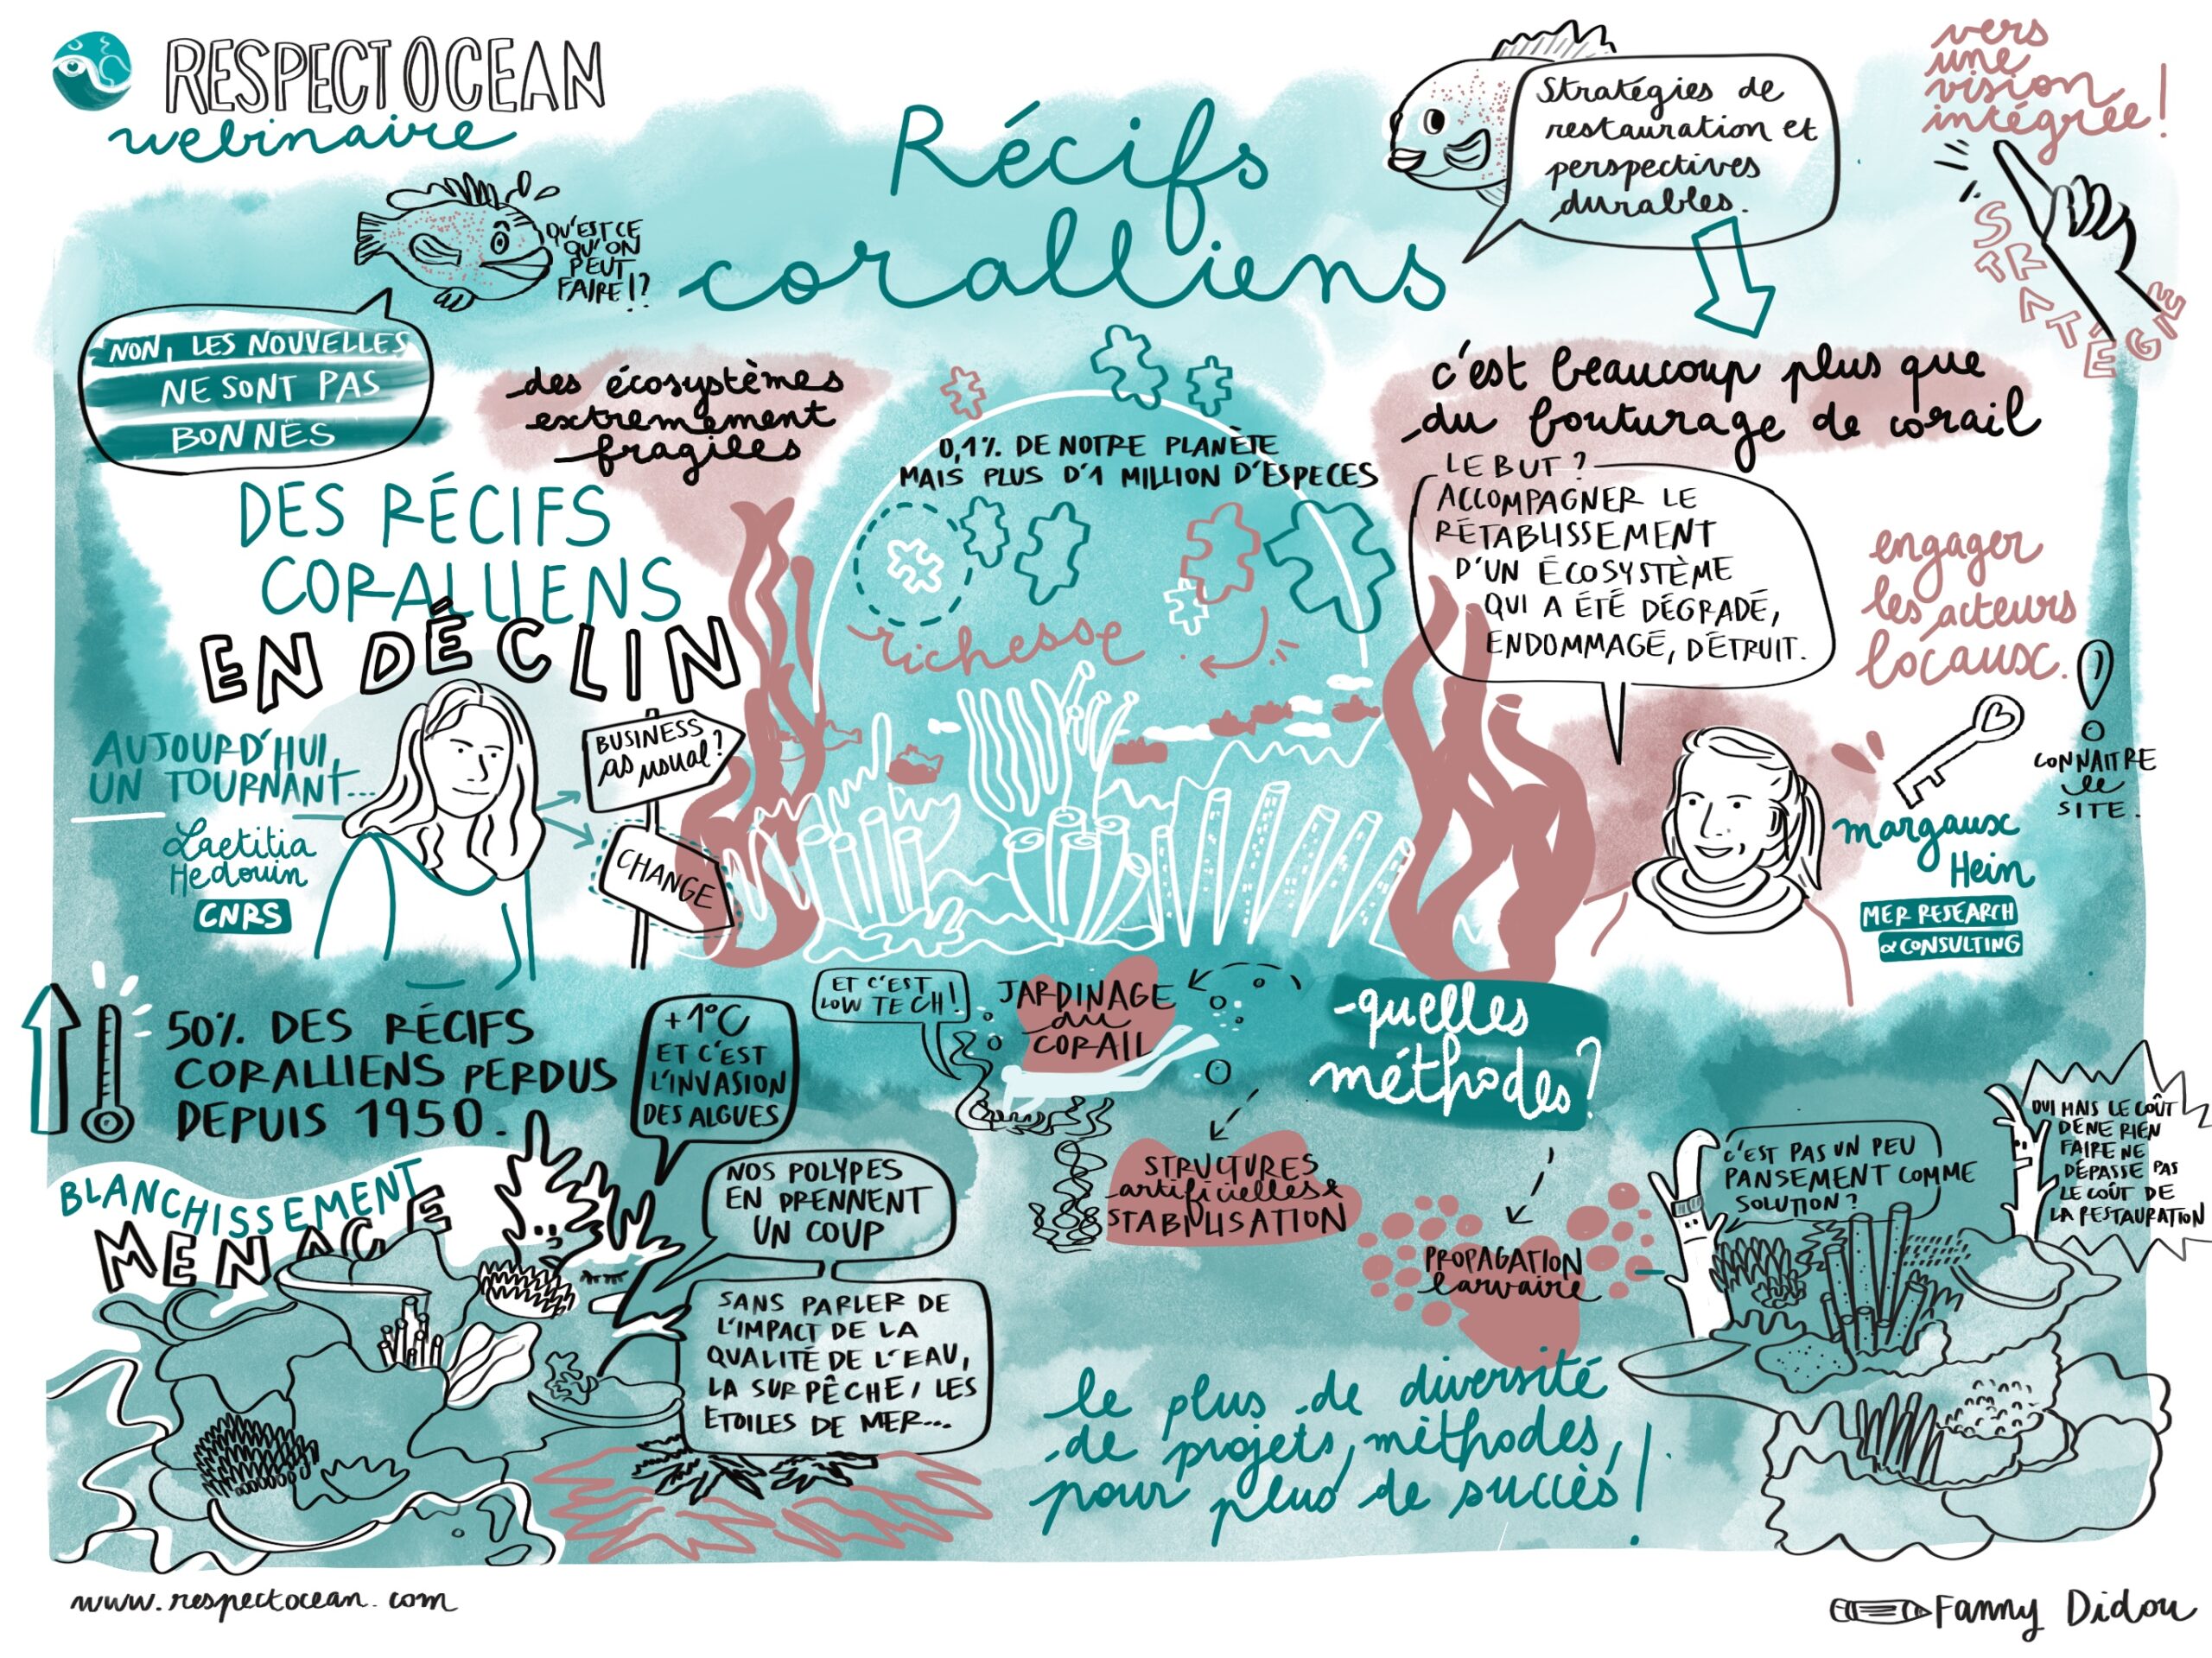 RESPECTOCEAN
webinaire
QU'EST CE
QU'ON
PEUT
FAIRE !?
NON, LES NOUVELLES
NE SONT PAS
BONNES
Récifs
coralliens
Stratégies de
restauration et
perspectives
durables.
vers
une
vision
intégrée !
STRATÉGIE
des écosystèmes
extrêmement
fragiles
DES RÉCIFS
CORALLIENS
EN DÉCLIN
0,1% DE NOTRE PLANÈTE
MAIS PLUS D'1 MILLION D'ESPECES
richesse
c'est beaucoup plus que
du bouturage de corail
LE BUT ?
ACCOMPAGNER LE
RÉTABLISSEMENT
D'UN ÉCOSYSTÈME
QUI A ÉTÉ DÉGRADÉ,
ENDOMMAGÉ, DÉTRUIT.
engager
les acteurs
locaux.
CONNAITRE
le
SITE.
AUJOURD'HUI
UN TOURNANT...
Laetitia
Hedouin
CNRS
BUSINESS
as usual ?
CHANGE
margaux
Hein
MER RESEARCH
& CONSULTING
50% DES RÉCIFS
CORALLIENS PERDUS
DEPUIS 1950.
+1°C
ET C'EST
L'INVASION
DES ALGUES
BLANCHISSEMENT
MENACE
NOS POLYPES
EN PRENNENT
UN COUP
SANS PARLER DE
L'IMPACT DE LA
QUALITÉ DE L'EAU,
LA SURPÊCHE, LES
ETOILES DE MER...
ET C'EST
LOW TECH !
JARDINAGE
du
CORAIL
quelles
méthodes ?
STRUCTURES
artificielles &
STABILISATION
PROPAGATION
larvaire
C'EST PAS UN PEU
PANSEMENT COMME
SOLUTION ?
OUI MAIS LE COÛT
DE NE RIEN
FAIRE NE
DÉPASSE PAS
LE COÛT DE
LA RESTAURATION
le plus de diversité
de projets, méthodes,
pour plus de succès !
www.respectocean.com
Fanny Didou